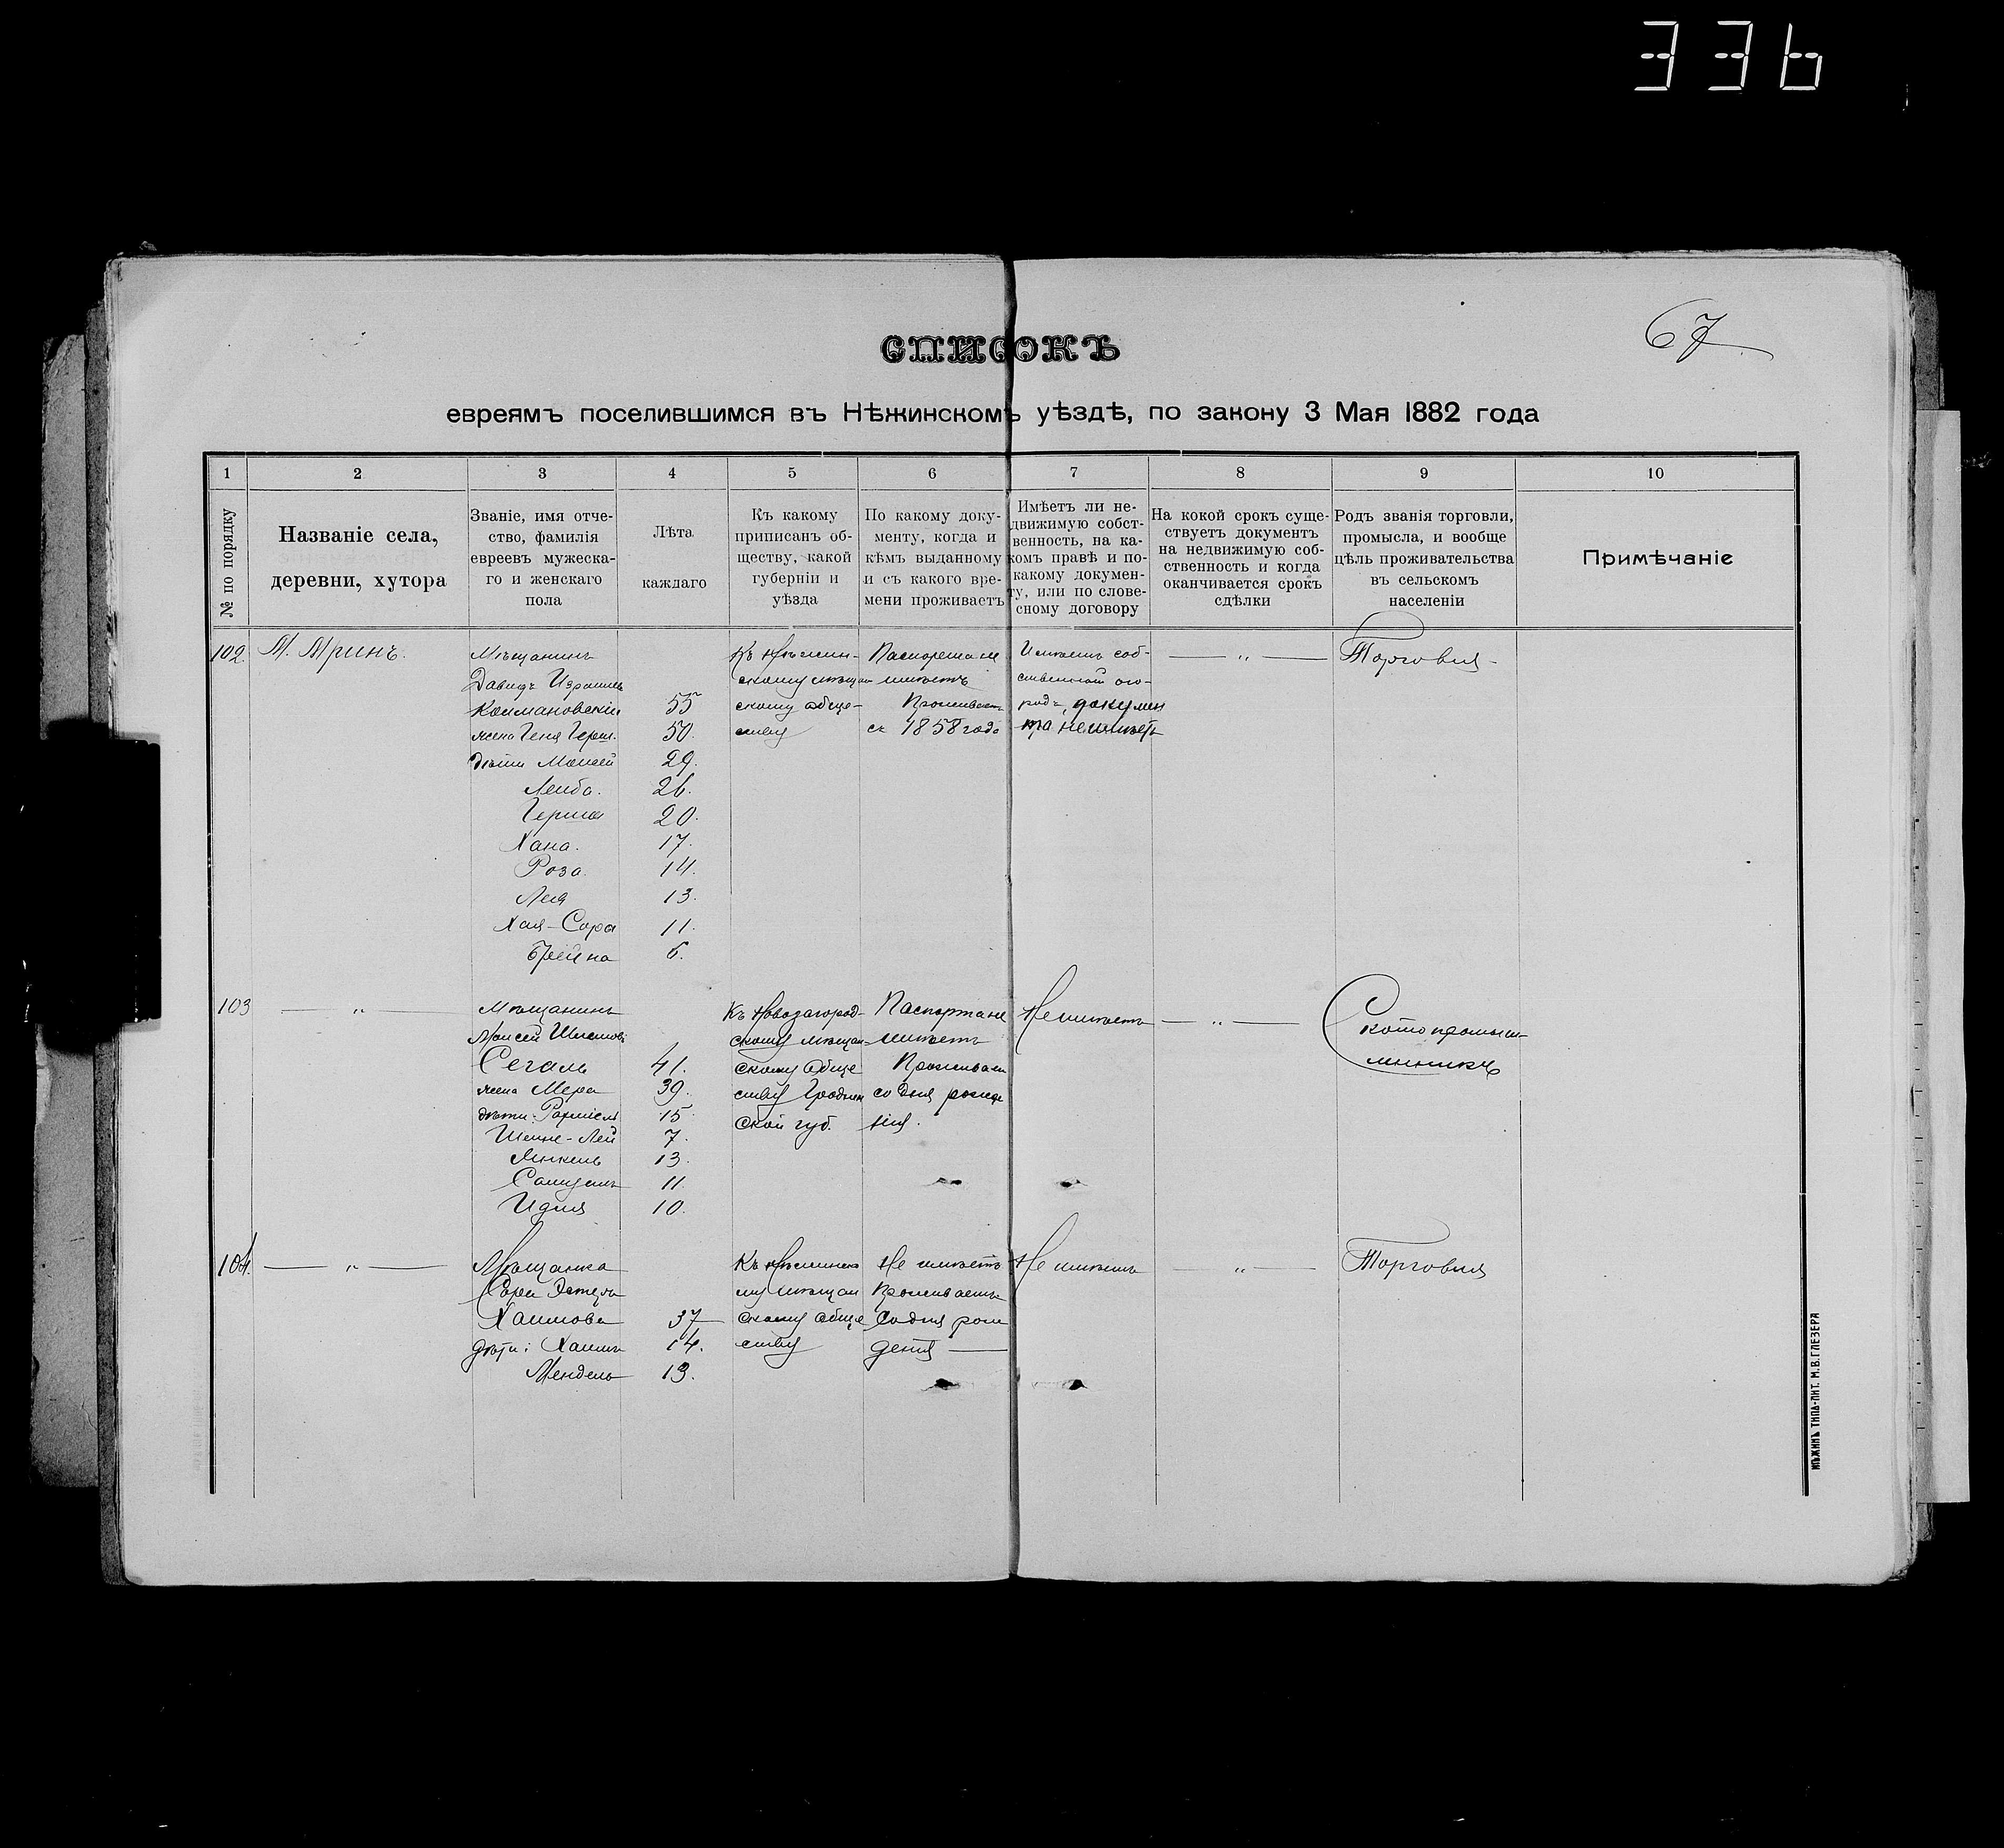 336
67
СПИСОКЪ
евреямъ поселившимся въ Нѣжинскомъ уѣздѣ, по закону 3 Мая 1882 года
1 2 3 4 5 6 7 8 9 10
№ по порядку
Названіе села,
деревни, хутора
Званіе, имя отче-
ство, фамилія
евреевъ мужеска-
го и женскаго
пола
Лѣта
каждаго
Къ какому
приписанъ об-
ществу, какой
губерніи и
уѣзда
По какому доку-
менту, когда и
кѣмъ выданному
и съ какого вре-
мени проживаетъ
Имѣетъ ли не-
движимую собст-
венность, на ка-
комъ правѣ и по-
какому докумен-
ту, или по слове-
сному договору
На кокой срокъ суще-
ствуетъ документъ
на недвижимую соб-
ственность и когда
оканчивается срокъ
сдѣлки
Родъ званія торговли,
промысла, и вообще
цѣль проживательства
въ сельскомъ
населеніи
Примѣчаніе
102
М. Мринъ.
Мѣщанинъ
Давидъ Израилев
55
жена Геня Герш.
50.
дѣти Моисей
29.
Лейба.
26.
Герша
20.
Хана.
17.
Роза.
14.
Лея
13.
Хая-Сора
11.
Брейна
6.
Къ Нѣжин-
скому мѣщан
скому обще-
ству
Паспорта не
имѣетъ
Проживаетъ
съ 1858 года
Имѣетъ соб-
ственный ого-
родъ, докумен
та не имѣетъ
— „ —
Торговля
103
— „ —
Мѣщанинъ
Моисей
Сегаль
41.
жена Мера
39.
дѣти
15
7.
13.
11.
10.
Къ Новозагород-
скому мѣщан-
скому обще
ству Гроднен
ской губ.
Паспорта не
имѣетъ
Проживает
со дня рожде
нія.
Не имѣетъ
— „ —
Скотопромыш-
ленникъ
104.
— „ —
Мѣщанка
Сора Эстеръ
Хаимова
37
дѣти: Хаимъ
14.
Мендель
13.
Къ Нѣжинско
му мѣщан
скому обще
ству
Не имѣетъ
Проживаетъ
со дня рож
денія —
Не имѣетъ
— „ —
Торговля
НѢЖИНЪ ТИПО-ЛИТ. М.В.ГЛЕЗЕРА